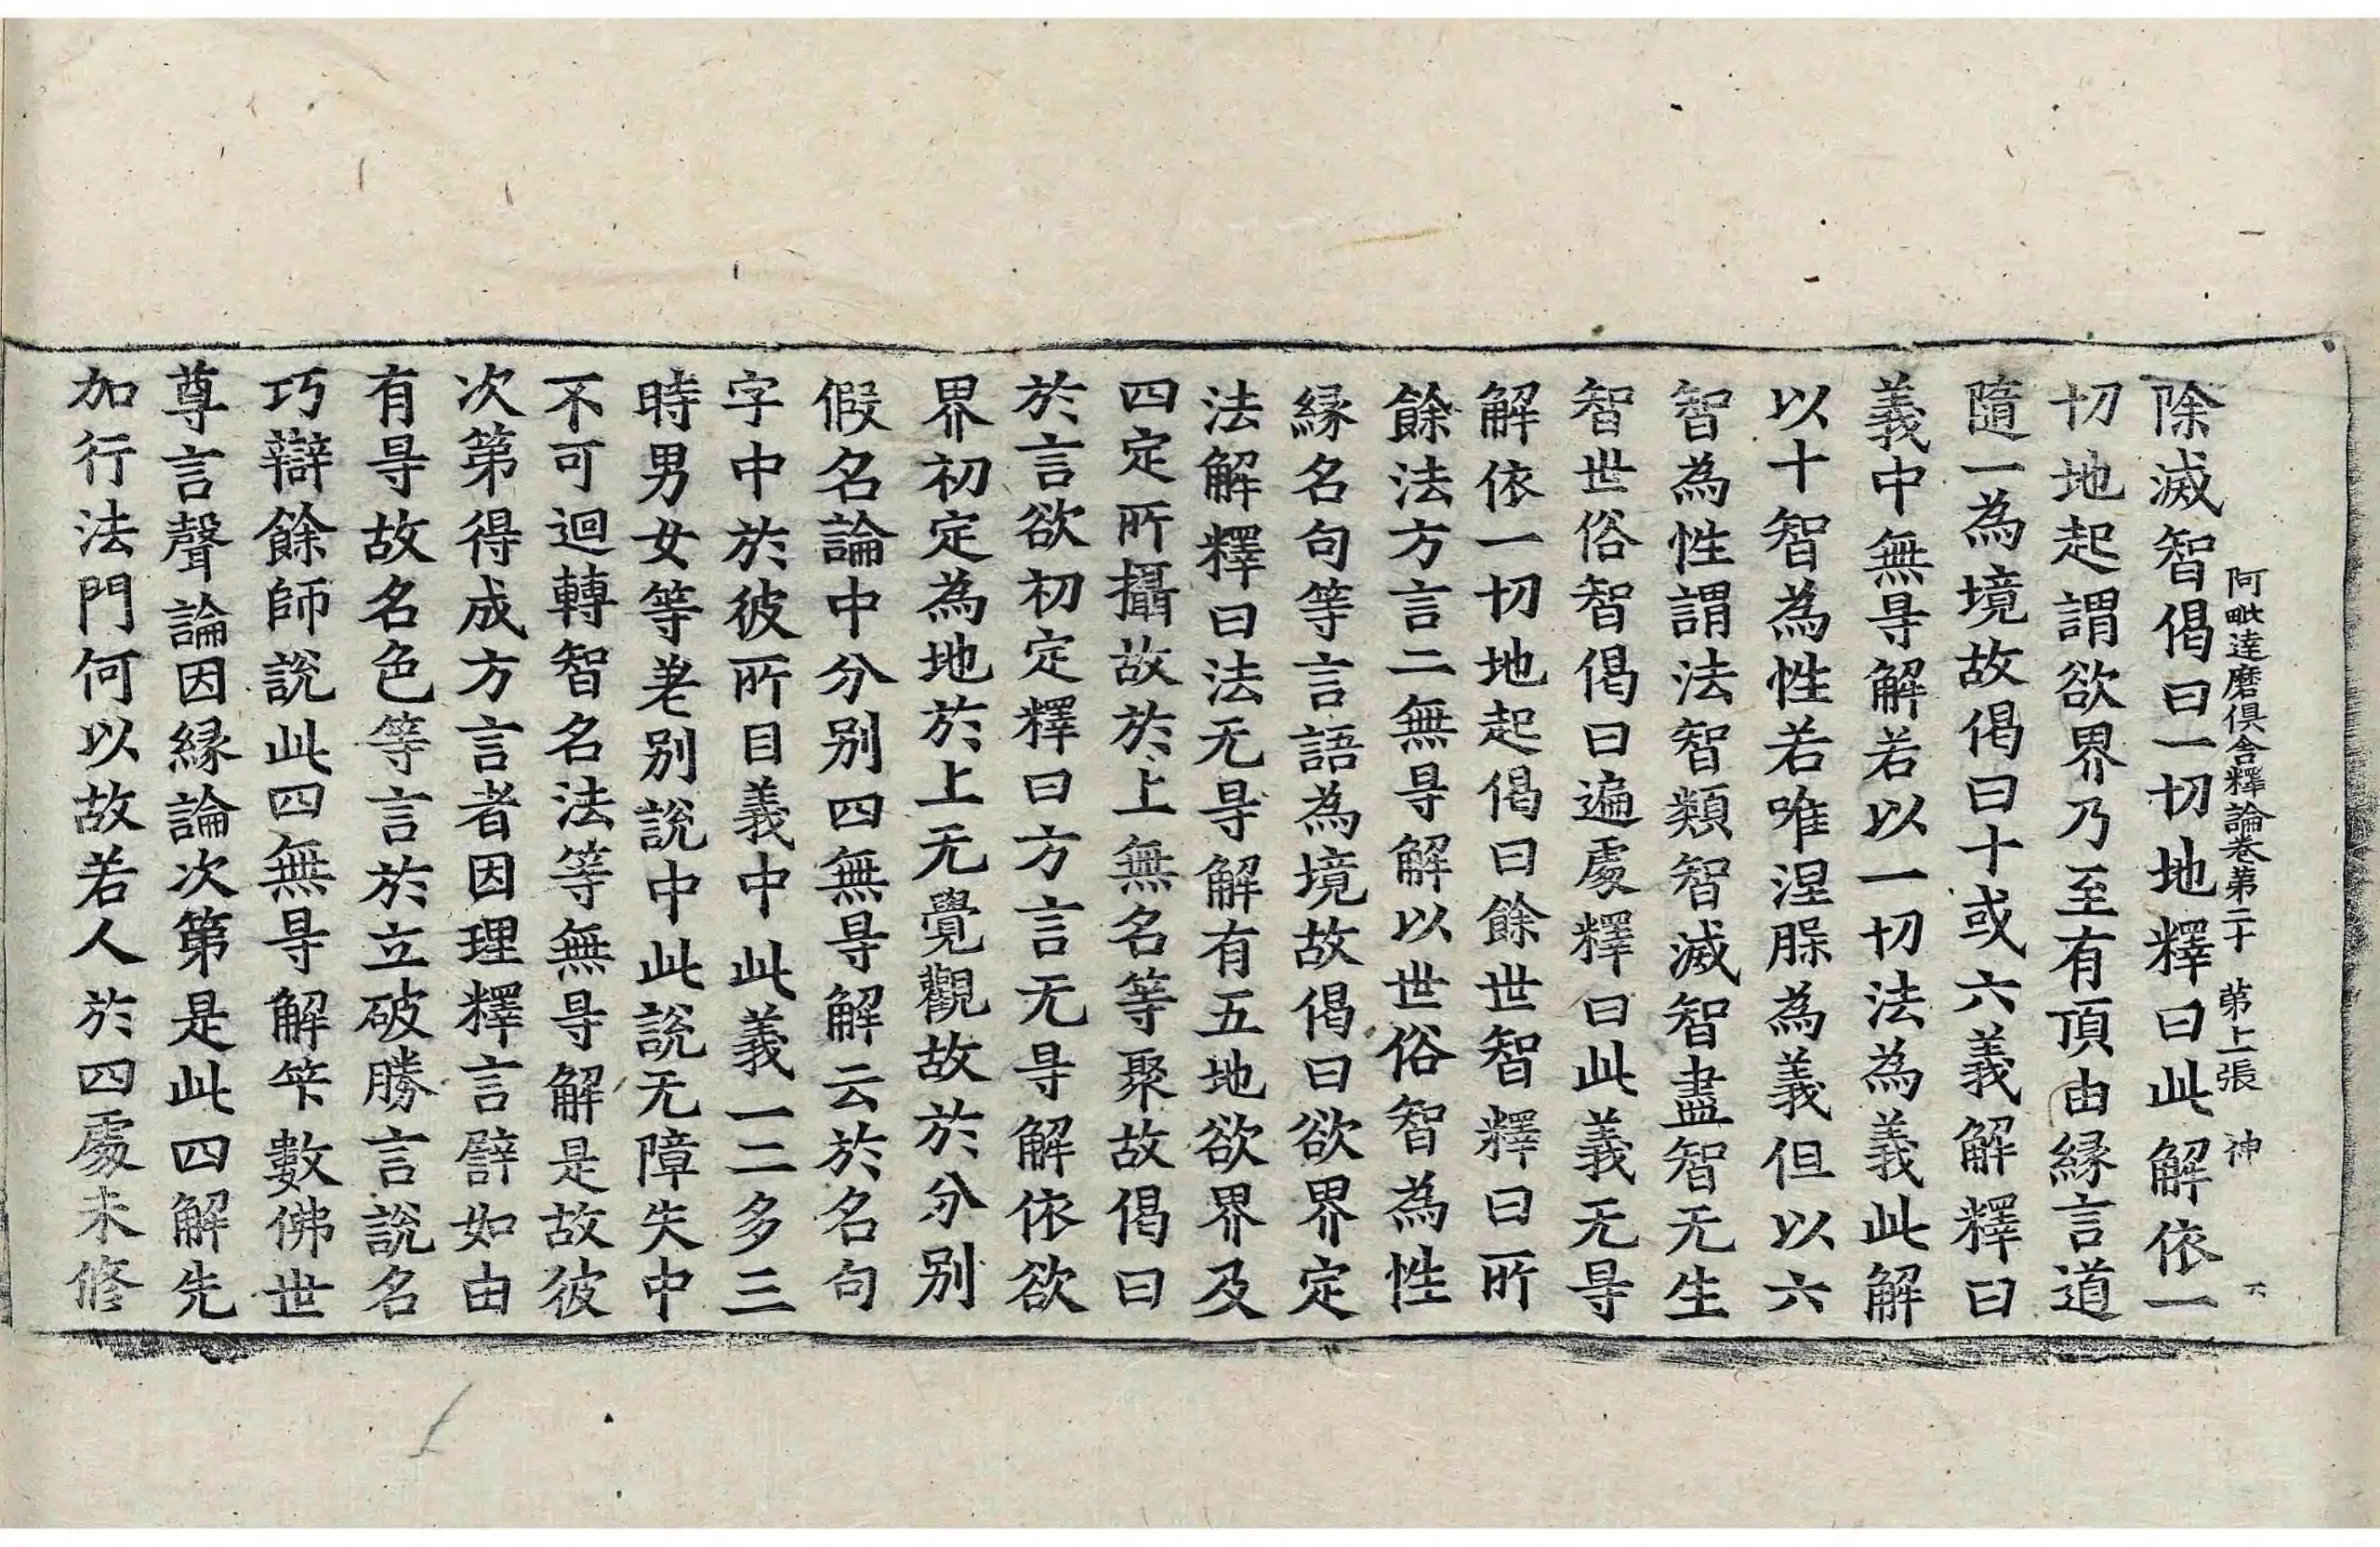 阿毗達磨俱舍釋論卷第二十 第上張 神
六
除滅智偈曰一切地釋曰此解依一
切地起謂欲界乃至有頂由緣言道
隨一為境故偈曰十或六義解釋曰
義中無㝵解若以一切法為義此解
以十智為性若唯涅脲為義但以六
智為性謂法智類智滅智盡智无生
智世俗智偈曰遍處釋曰此義无㝵
解依一切地起偈曰餘世智釋曰所
餘法方言二無㝵解以世俗智為性
緣名句等言語為境故偈曰欲界定
法解釋曰法无㝵解有五地欲界及
四定所攝故於上無名等聚故偈曰
於言欲初定釋曰方言无㝵解依欲
界初定為地於上无覺觀故於分別
假名論中分別四無㝵解云於名句
字中於彼所目義中此義一二多三
時男女等差別說中此說无障失中
不可迴轉智名法等無㝵解是故彼
次第得成方言者因理釋言譬如由
有㝵故名色等言於立破勝言說名
巧辯餘師說此四無㝵解笇數佛世
尊言聲論因緣論次第是此四解先
加行法門何以故若人於四處未修